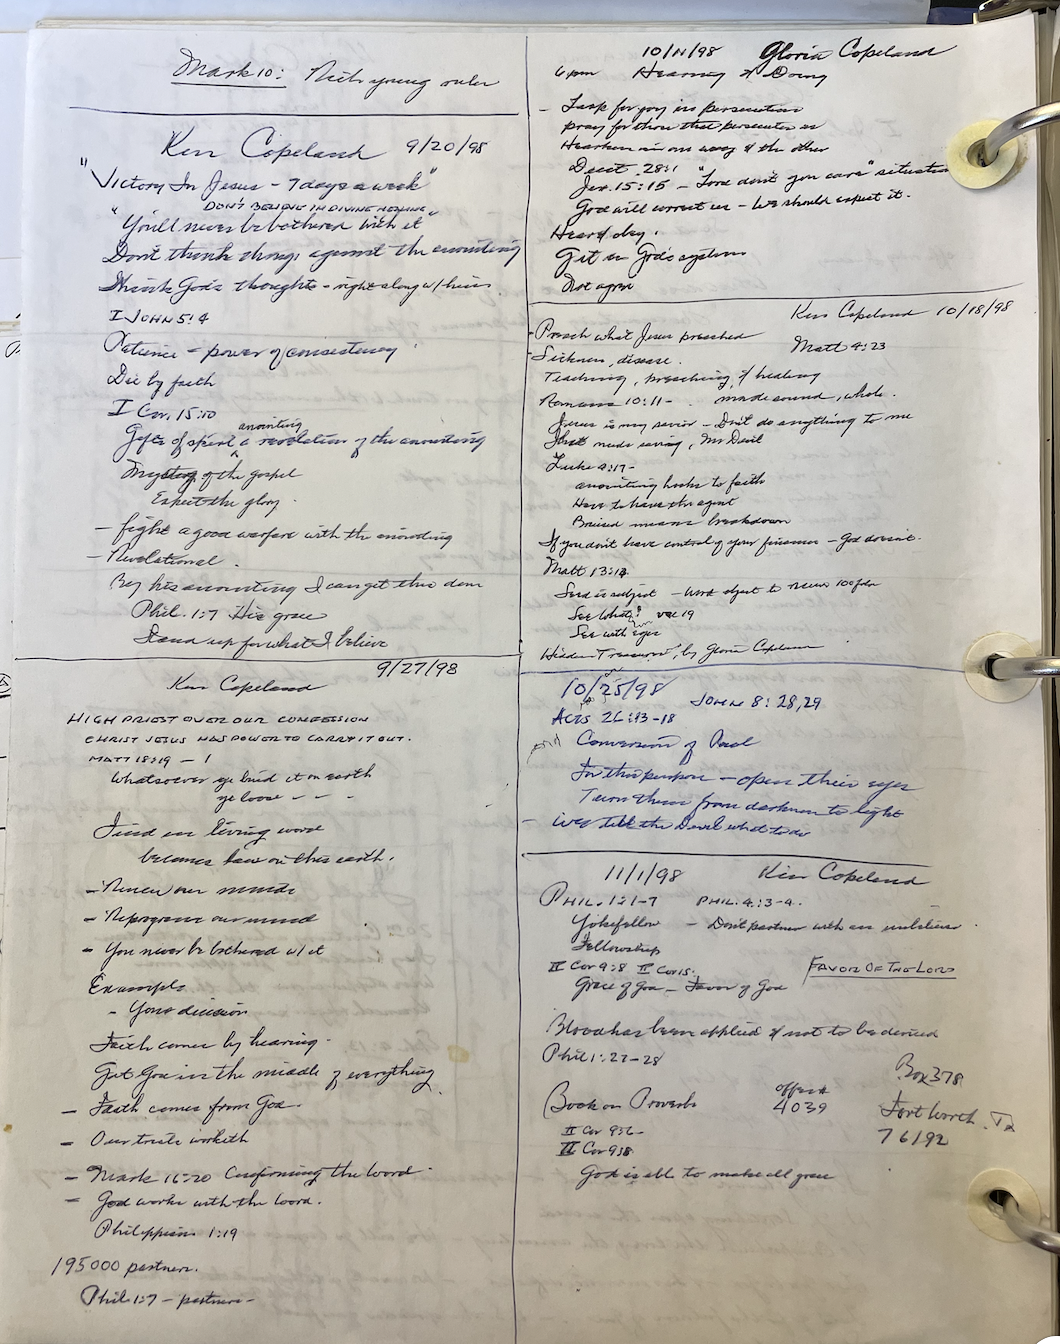 Mark 10: Rich young ruler
Ken Copeland 9/20/98
"Victory In Jesus - 7 days a week"
DON'T BELIEVE IN DIVINE HEALING
"You'll never be bothered with it"
Don't think things against the anointing
Think God's thoughts - right along w/ his
I JOHN 5:4
Patience - power of consistency
Die by faith
I Cor. 15:10
anointing
Gifts of spirit a revelation of the anointing
Mystery of the gospel
Expect the glory.
- fight a good warfare with the anointing
- Revelational.
By his anointing I can get this done
Phil. 1:7 His grace
Stand up for what I believe
9/27/98
Ken Copeland
HIGH PRIEST OVER OUR CONFESSION
CHRIST JESUS HAS POWER TO CARRY IT OUT.
MATT 18:19 - 1
Whatsoever ye bind it on earth
ye loose - - -
Find in living word
becomes law on this earth.
- Renew our minds
- Reprogram our mind
- You never be bothered w/ it
Example
- Your decision
Faith comes by hearing.
Get God in the middle of everything
- Faith comes from God.
- Our truth worketh
- Mark 16:20 Confirming the word.
- God works with the word.
Philippians 1:19
195000 partners.
Phil 1:7 - partners -
10/11/98 Gloria Copeland
6 pm Hearing & Doing
- Leap for joy in persecution
pray for those that persecute us
Hearken in one way or the other
Deut. 28:1
Jer. 15:15 - "Lord don't you care" situation
God will correct us - We should expect it.
Heard day.
Get in God's system
Not agree
Ken Copeland 10/18/98
- Preach what Jesus preached
Matt 4:23
- Sickness, disease.
Teaching, preaching, & healing
Romans 10:11 - made sound, whole.
Jesus is my savior - Don't do anything to me
that needs saving, Mr Devil
Luke 4:17-
anointing hooks to faith
Have to have the agent
Bruised means breakdown
If you don't have control of your finances - God doesn't.
Matt 13:12
Seed is subject - word object to receive 100 fold
See What? ver 19
See with eyes
Hidden Treasures, by Gloria Copeland
10/25/98
JOHN 8: 28,29
Acts 26:13-18
Conversion of Paul
For this purpose - open their eyes
Turn them from darkness to light
- we tell the Devil what to do
11/1/98 Ken Copeland
PHIL. 1:1-7 PHIL. 4:3-4.
Yokefellow - Don't partner with an unbeliever.
Fellowship
II Cor 9:8 II Cor 15.
FAVOR OF THE LORD
Grace of God - Favor of God
Blood has been applied & not to be denied
Phil 1:27-28
Box 378
offer #
Book on Proverbs 4039
Fort Worth, Tx
76192
II Cor 9:6-
II Cor 9:8
God is able to make all grace